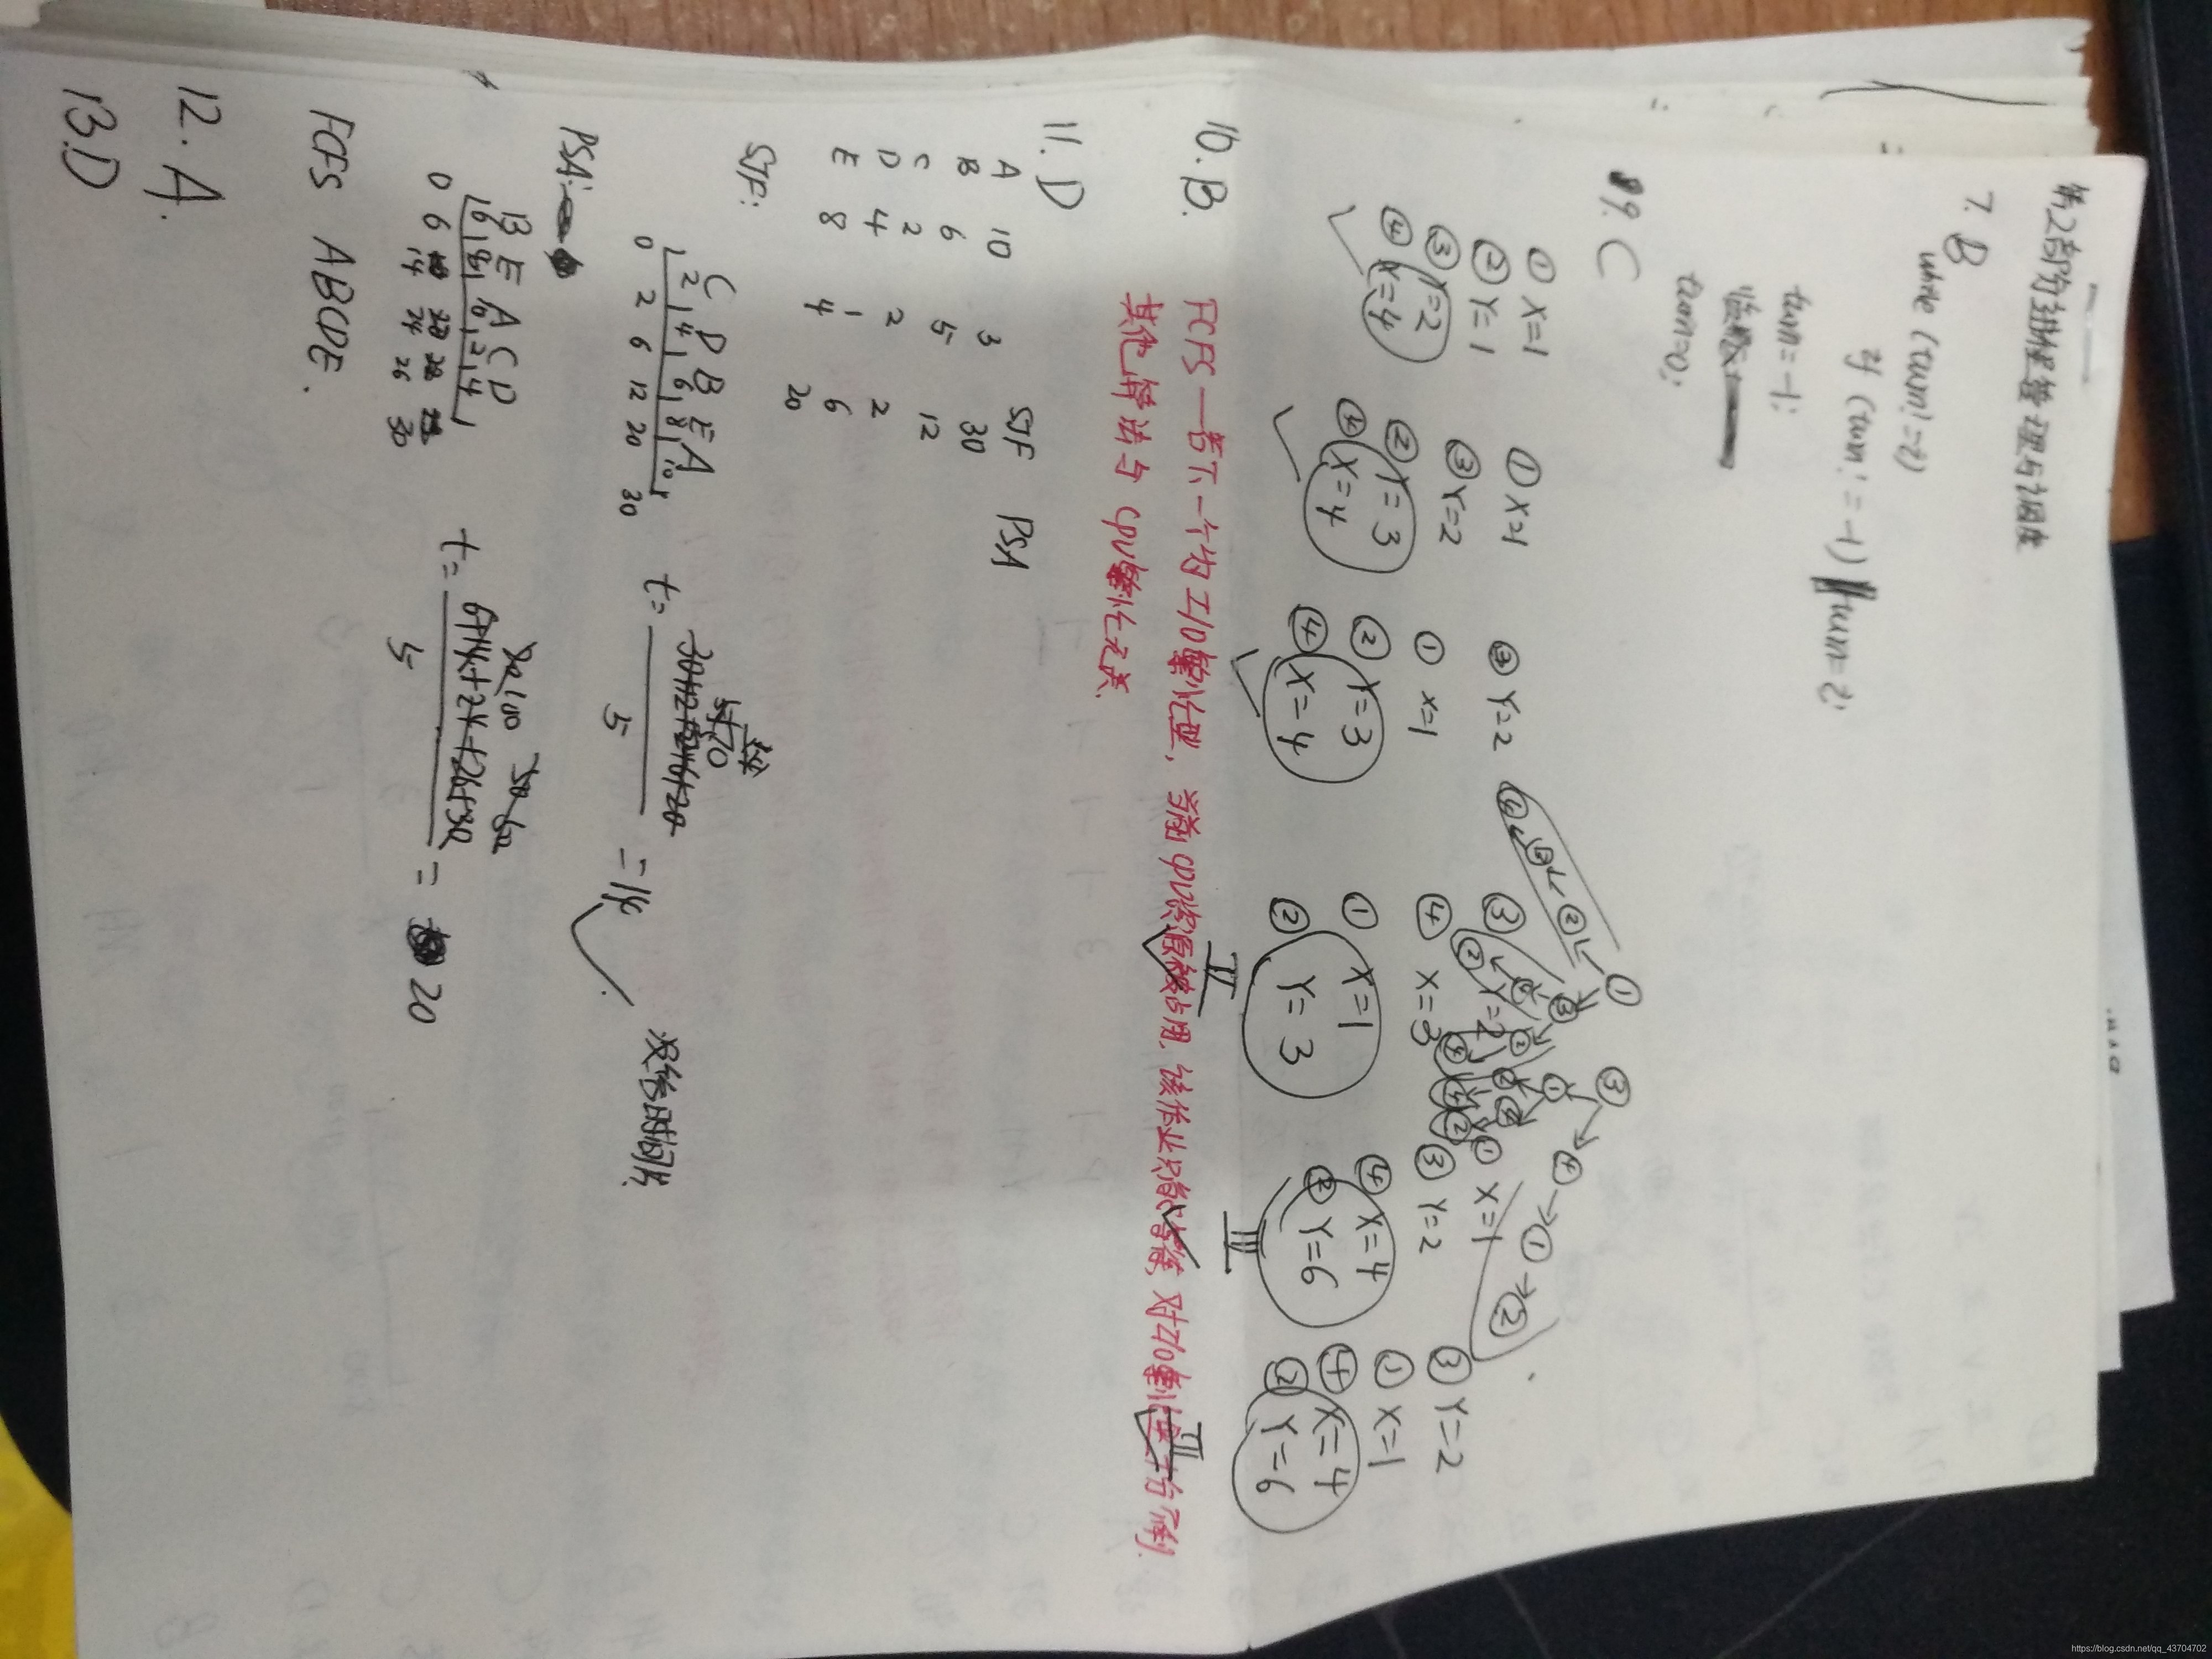 第2部分 进程管理与调度
7. B
while (turn!=i)
if (turn!=-1) turn=i;
turn=-1;
turn=0;
9. C
① X=1 ① X=1 ③ Y=2 ③ Y=2 ① X=1 ③ Y=2
② Y=1 ③ Y=2 ① X=1 ④ X=3 ③ Y=2 ① X=1
③ Y=2 ② Y=3 ② Y=3 ① X=1 ④ X=4 ④ X=4
④ X=4 ④ X=4 ④ X=4 ② Y=3 ② Y=6 ② Y=6
① ③
④ → ① → ②
II III II
10. B.
FCFS——若下一个为I/O繁忙型，当前CPU资源被占用，该作业只能等待，对I/O繁忙型十分不利.
其他算法与CPU繁忙无关.
11. D
SJF PSA
A 10 3 30
B 6 5 12
C 2 2 2
D 4 1 6
E 8 4 20
SJF:
C D B E A
2 4 6 8 10
0 2 6 12 20 30
t= 70 / 5 = 14
没给时间片.
PSA:
B E A C D
6 8 10 2 4
0 6 14 24 26 30
t= 6+14+24+26+30 / 5 = 20
100
FCFS ABCDE.
12. A.
13. D
https://blog.csdn.net/qq_43704702